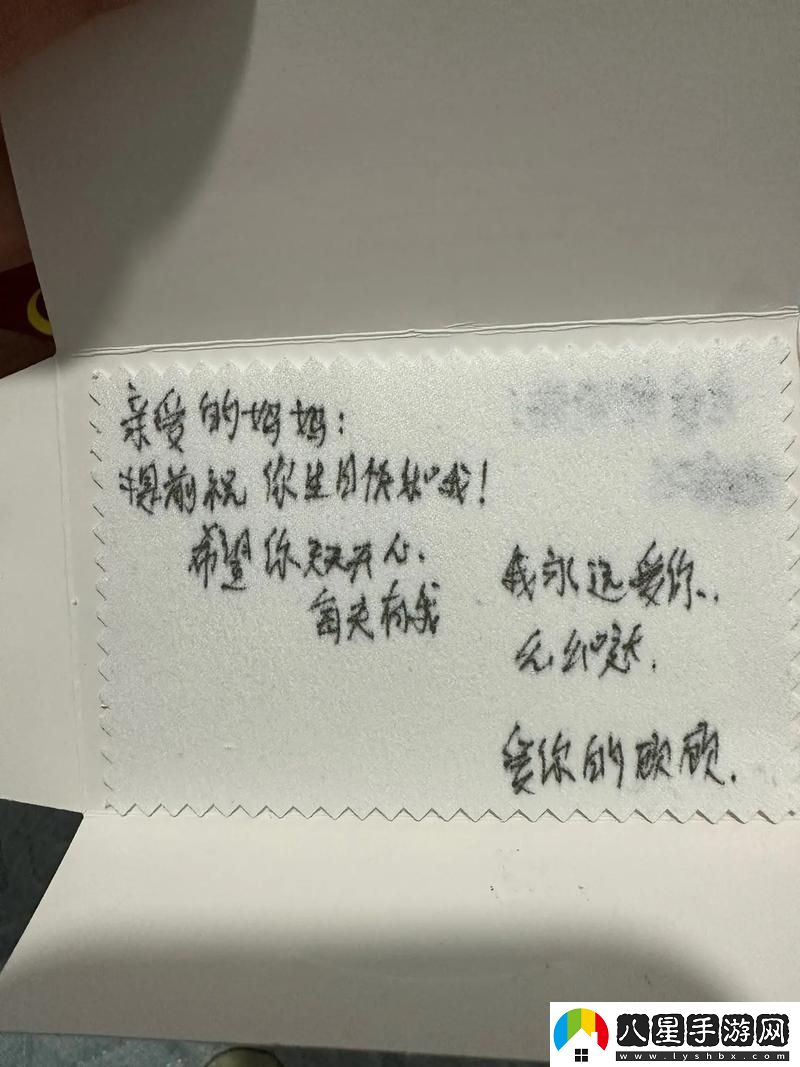 亲爱的妈妈：
提前祝你生日快乐哦！
希望你天天开心、
每天有我
我永远爱你、
无纠
爱你的顾顾.
八星手游网
www.lyshbx.com